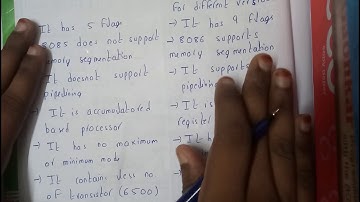 For different version
→ It has 5 flags
→ It has 9 flags
8085 does not support
→ 8086 supports
memory segmentation
memory segmentation
→ It doesnot support
→ It supports
pipelining
pipelining
→ It is accumulatored
→ It is
based processor
register
→ It has no maximum
→ It
or minimum mode
→ It contains less no
of transistor (6500)